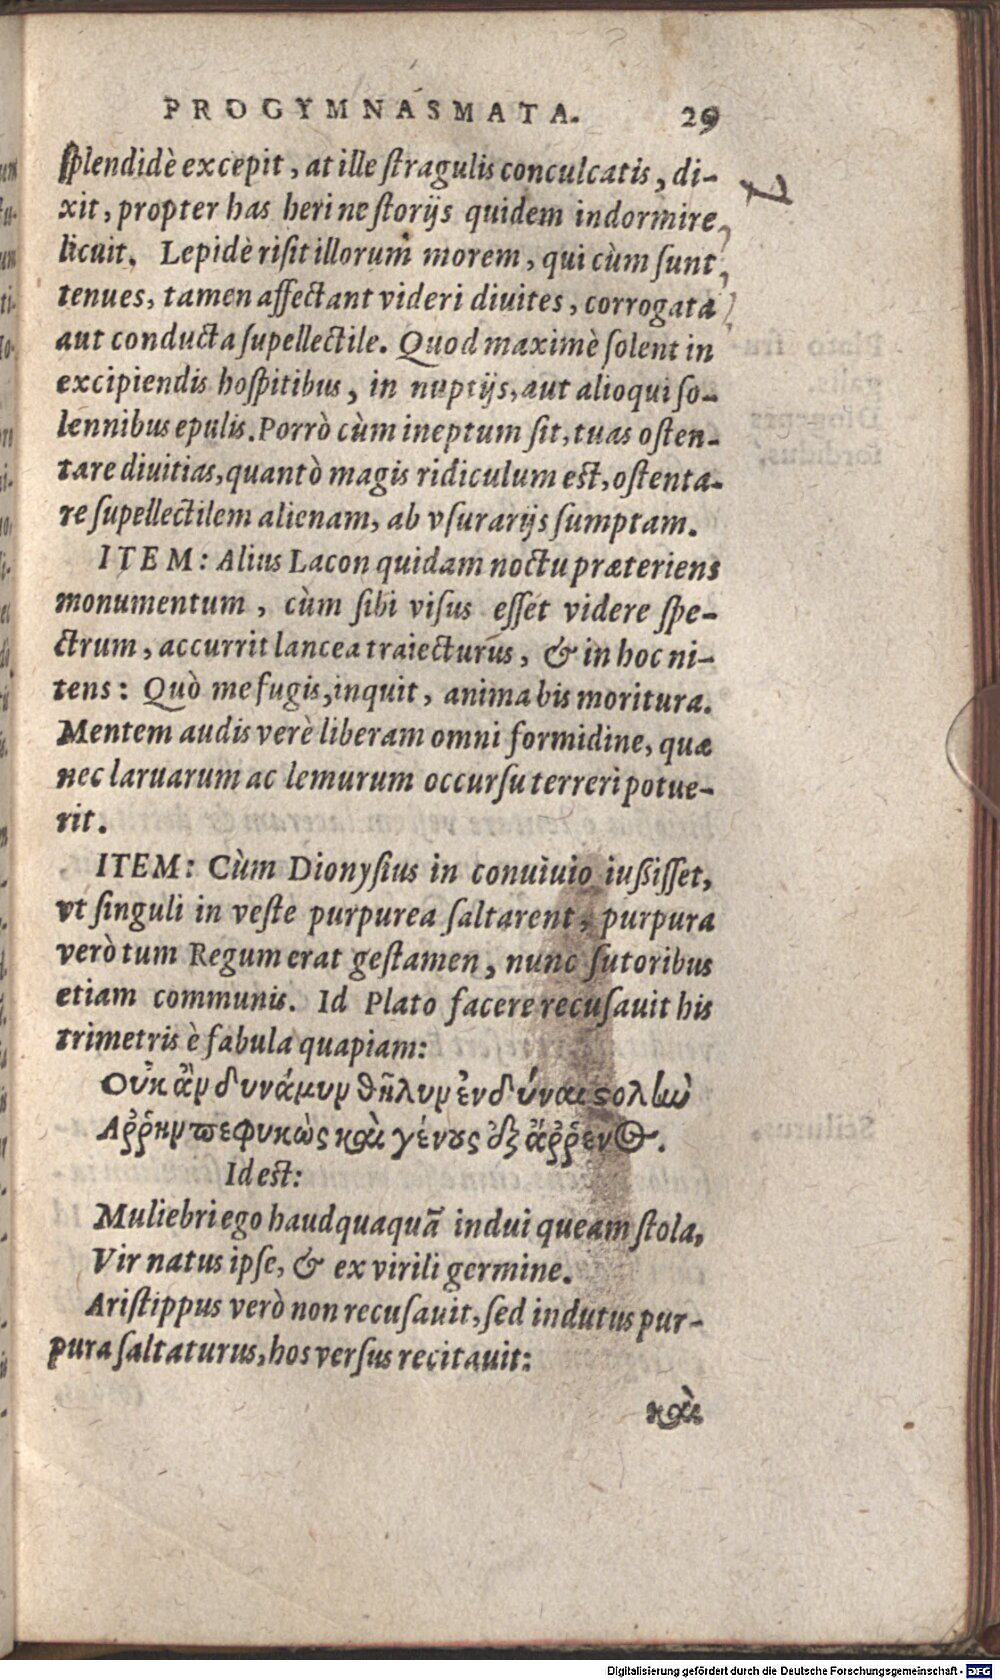 PROGYMNASMATA. 29
ſplendidè excepit, at ille ſtragulis conculcatis, di-
xit, propter has heri ne ſtorijs quidem indormire
licuit. Lepidè riſit illorum morem, qui cùm ſunt
tenues, tamen affectant videri diuites, corrogata
aut conducta ſupellectile. Quod maximè ſolent in
excipiendis hoſpitibus, in nuptijs, aut alioqui ſo-
lennibus epulis. Porrò cùm ineptum ſit, tuas oſten-
tare diuitias, quantò magis ridiculum eſt, oſtenta-
re ſupellectilem alienam, ab vſurarijs ſumptam.
ITEM: Alius Lacon quidam noctu præteriens
monumentum, cùm ſibi viſus eſſet videre ſpe-
ctrum, accurrit lancea traiecturus, & in hoc ni-
tens: Quò me fugis, inquit, anima bis moritura.
Mentem audis verè liberam omni formidine, quæ
nec laruarum ac lemurum occurſu terreri potue-
rit.
ITEM: Cùm Dionyſius in conuiuio iuſſiſſet,
vt ſinguli in veſte purpurea ſaltarent, purpura
verò tum Regum erat geſtamen, nunc ſutoribus
etiam communis. Id Plato facere recuſauit his
trimetris è fabula quapiam:
Οὐκ ἂν δυνάμυν θῆλυν ἐνδύναι ϛολὴν
Αῤῥὴν πεφυκὼς καὶ γένους ἐξ ἄῤῥενος.
Id eſt:
Muliebri ego haudquaquã indui queam ſtola,
Vir natus ipſe, & ex virili germine.
Ariſtippus verò non recuſauit, ſed indutus pur-
pura ſaltaturus, hos verſus recitauit:
καὶ
Digitalisierung gefördert durch die Deutsche Forschungsgemeinschaft - DFG